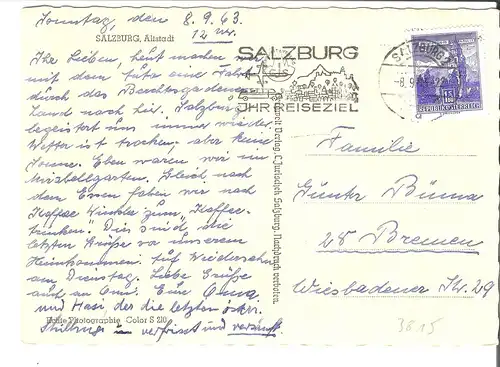 Sonntag, den 8.9.63.
12 Uhr.
SALZBURG, Altstadt
Ihr Lieben, heut machen wir
mit dem Auto eine Fahrt
durch das Berchtesgadener
Land nach hier. Salzburg
begeistert uns immer wieder.
Wetter ist trocken, aber keine
Sonne. Eben waren wir im
Mirabellgarten. Gleich nach
dem Essen fahren wir nach
Kaffee Winkler zum "Kaffee-
trinken". Dies sind die
letzten Grüße vor unserem
Heimkommen. Auf Wiedersehn
am Dienstag. Liebe Grüße
auch an Omi. Eure Oma
und Hasi, der die letzten österr.
Schillinge verfrisst und versäuft.
Echte Photographie Color S 210
Verlag C. Jurischek, Salzburg. Nachdruck verboten.
SALZBURG
IHR REISEZIEL
SALZBURG 2
8.9.63-22
REPUBLIK ÖSTERREICH
Familie
Günter Büma
28 Bremen
Wiesbadener Str. 29
3815